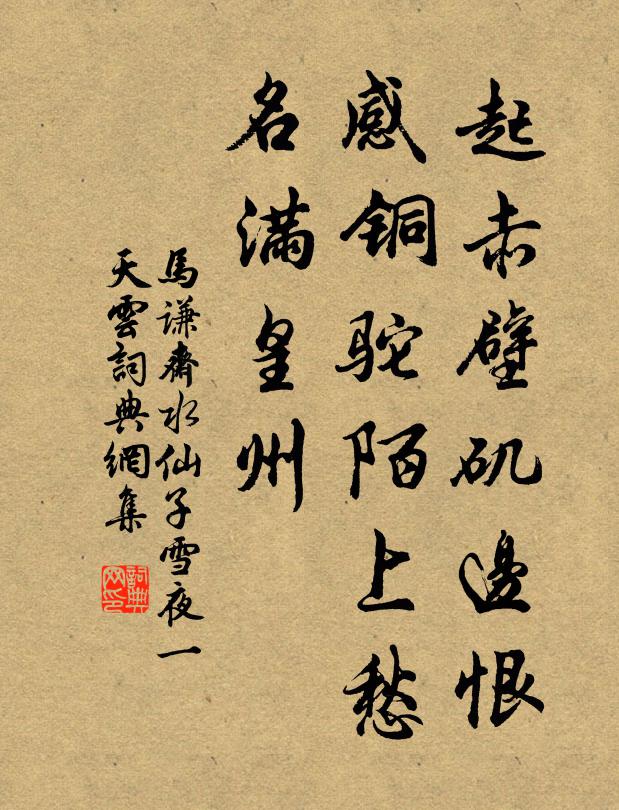 起赤壁矶邊恨
感铜驼陌上愁
名满皇州
馬谦齋水仙子雪夜一
天雲詞典網集
詞典
网印